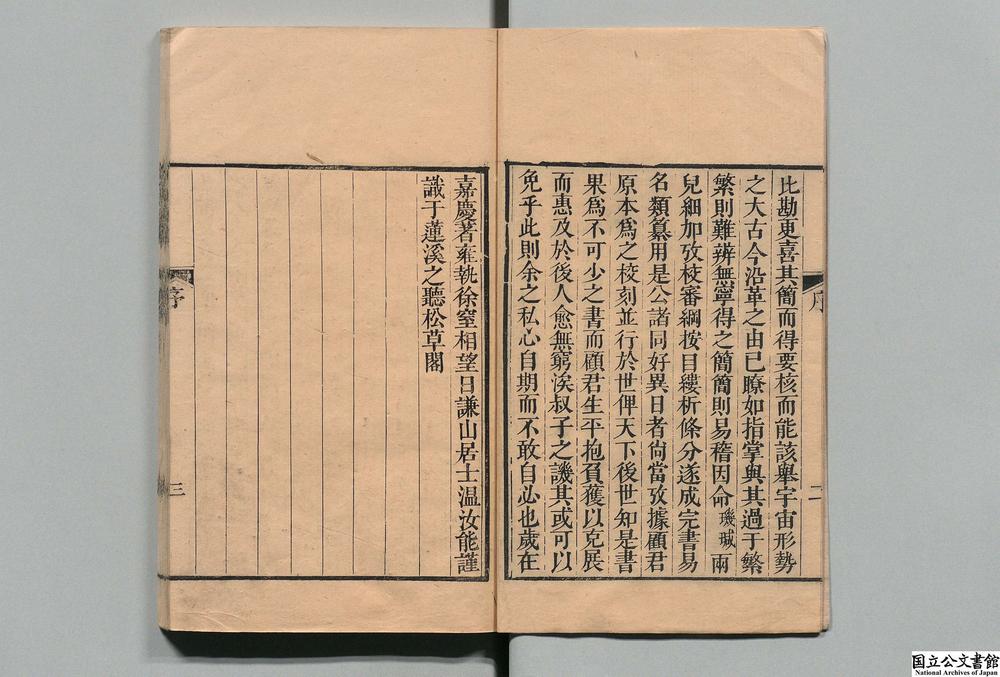 比勘更喜其簡而得要核而能該舉宇宙形勢
之大古今沿革之由已瞭如指掌與其過于繁
繁則難辨無寧得之簡簡則易稽因命璣珹兩
兒細加攷校審綱按目縷析條分遂成完書易
名類纂用是公諸同好異日者尙當攷據顧君
原本爲之校刻並行於世俾天下後世知是書
果爲不可少之書而顧君生平抱負獲以克展
而惠及於後人愈無窮涘叔子之譏其或可以
免乎此則余之私心自期而不敢自必也歲在
序
二
嘉慶著雍執徐窒相望日謙山居士温汝能謹
識于蓮溪之聽松草閣
序
三
国立公文書館
National Archives of Japan